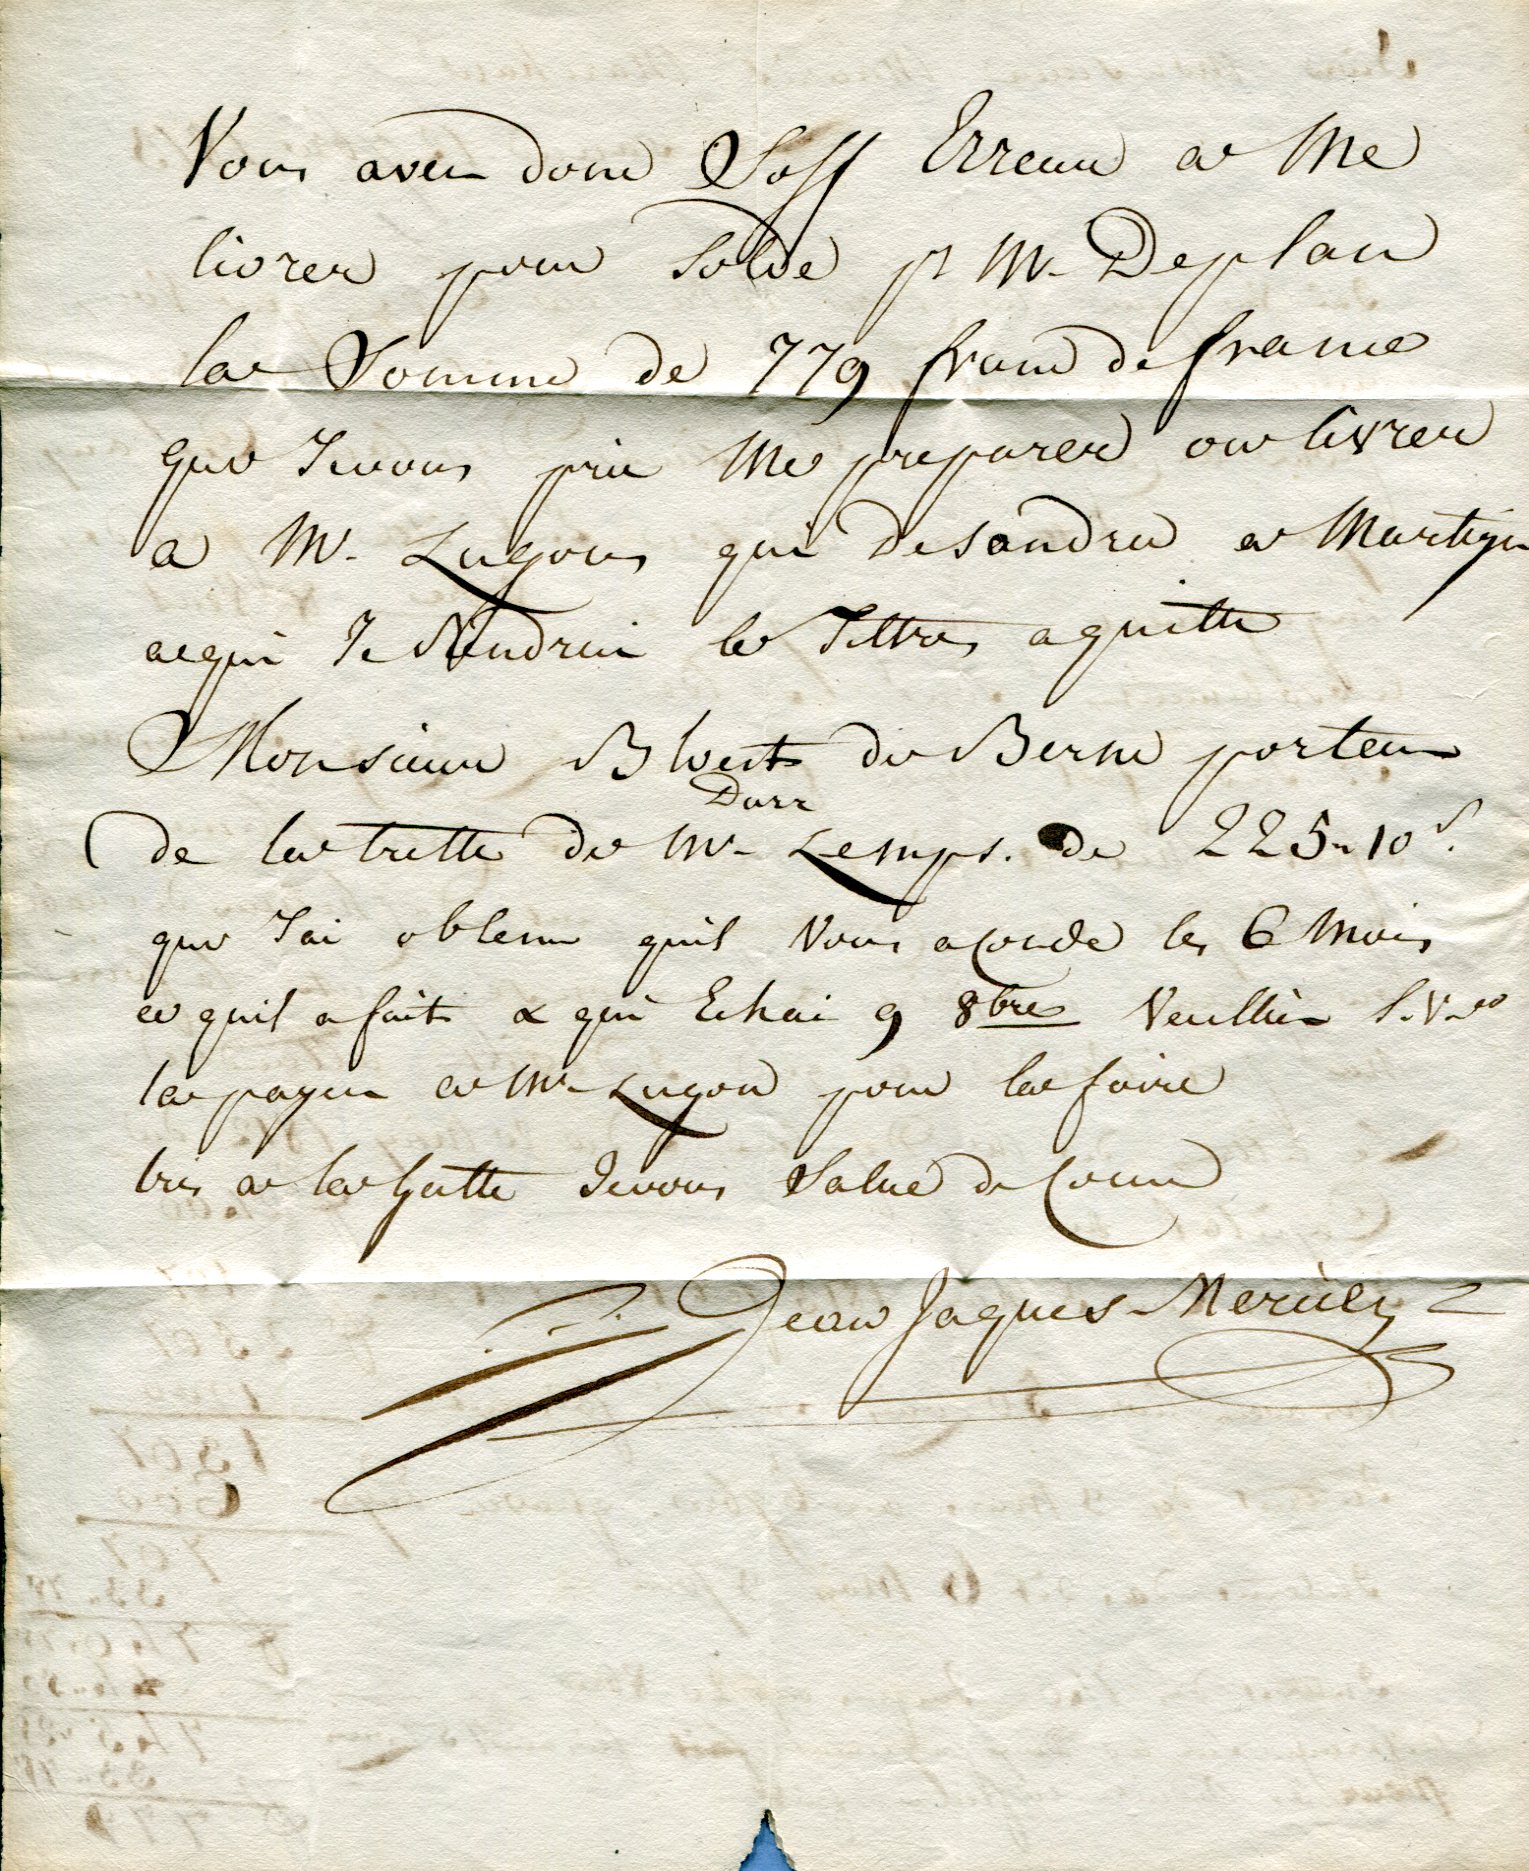 Vous aven donc Soff Erreur a Me
livrer pour Solde pr Mr Deplan
la Somme de 779 franc de france
que Jevous prie Me preparer ou livrer
a Mr. Lugons qui desandra a Martign
aqui Je Rendrai le Tittres aquitte
Monsieur Blvest de Berne porteur
Darx
de la trette de Mr Lemps. de 225 „ 10 s.
que Jai obtenu quil Vous acorde les 6 Mois
ce quil a fait & qui Echai 9 8bre Veullier S.V.
la payer a Mr Lugon pour la foire
tres a la hatte Jevous Salue de Coeur
Jean Jaques Merciez